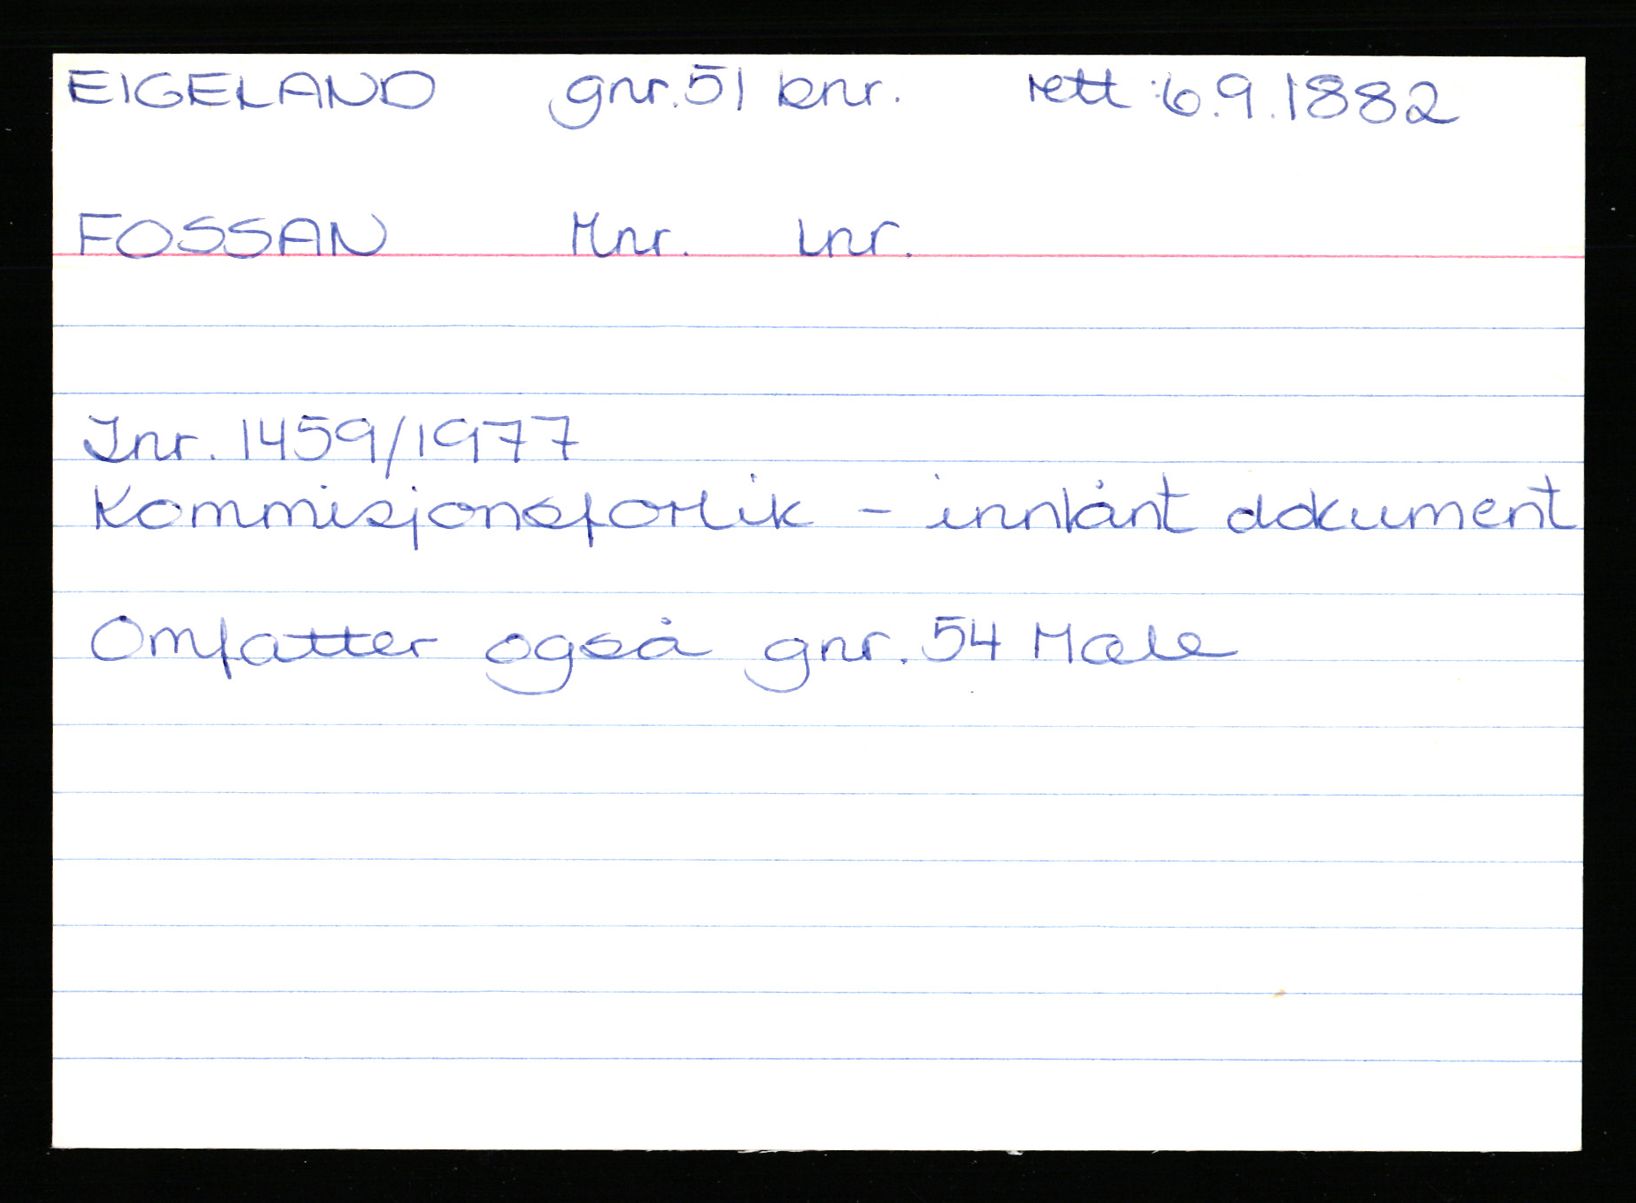 EIGELAND gnr. 51 bnr. rett: 6.9.1882
FOSSAN Mnr. Lnr.
Jnr. 1459/1977
Kommisjonsforlik - innlånt dokument
Omfatter også gnr. 54 Mæle